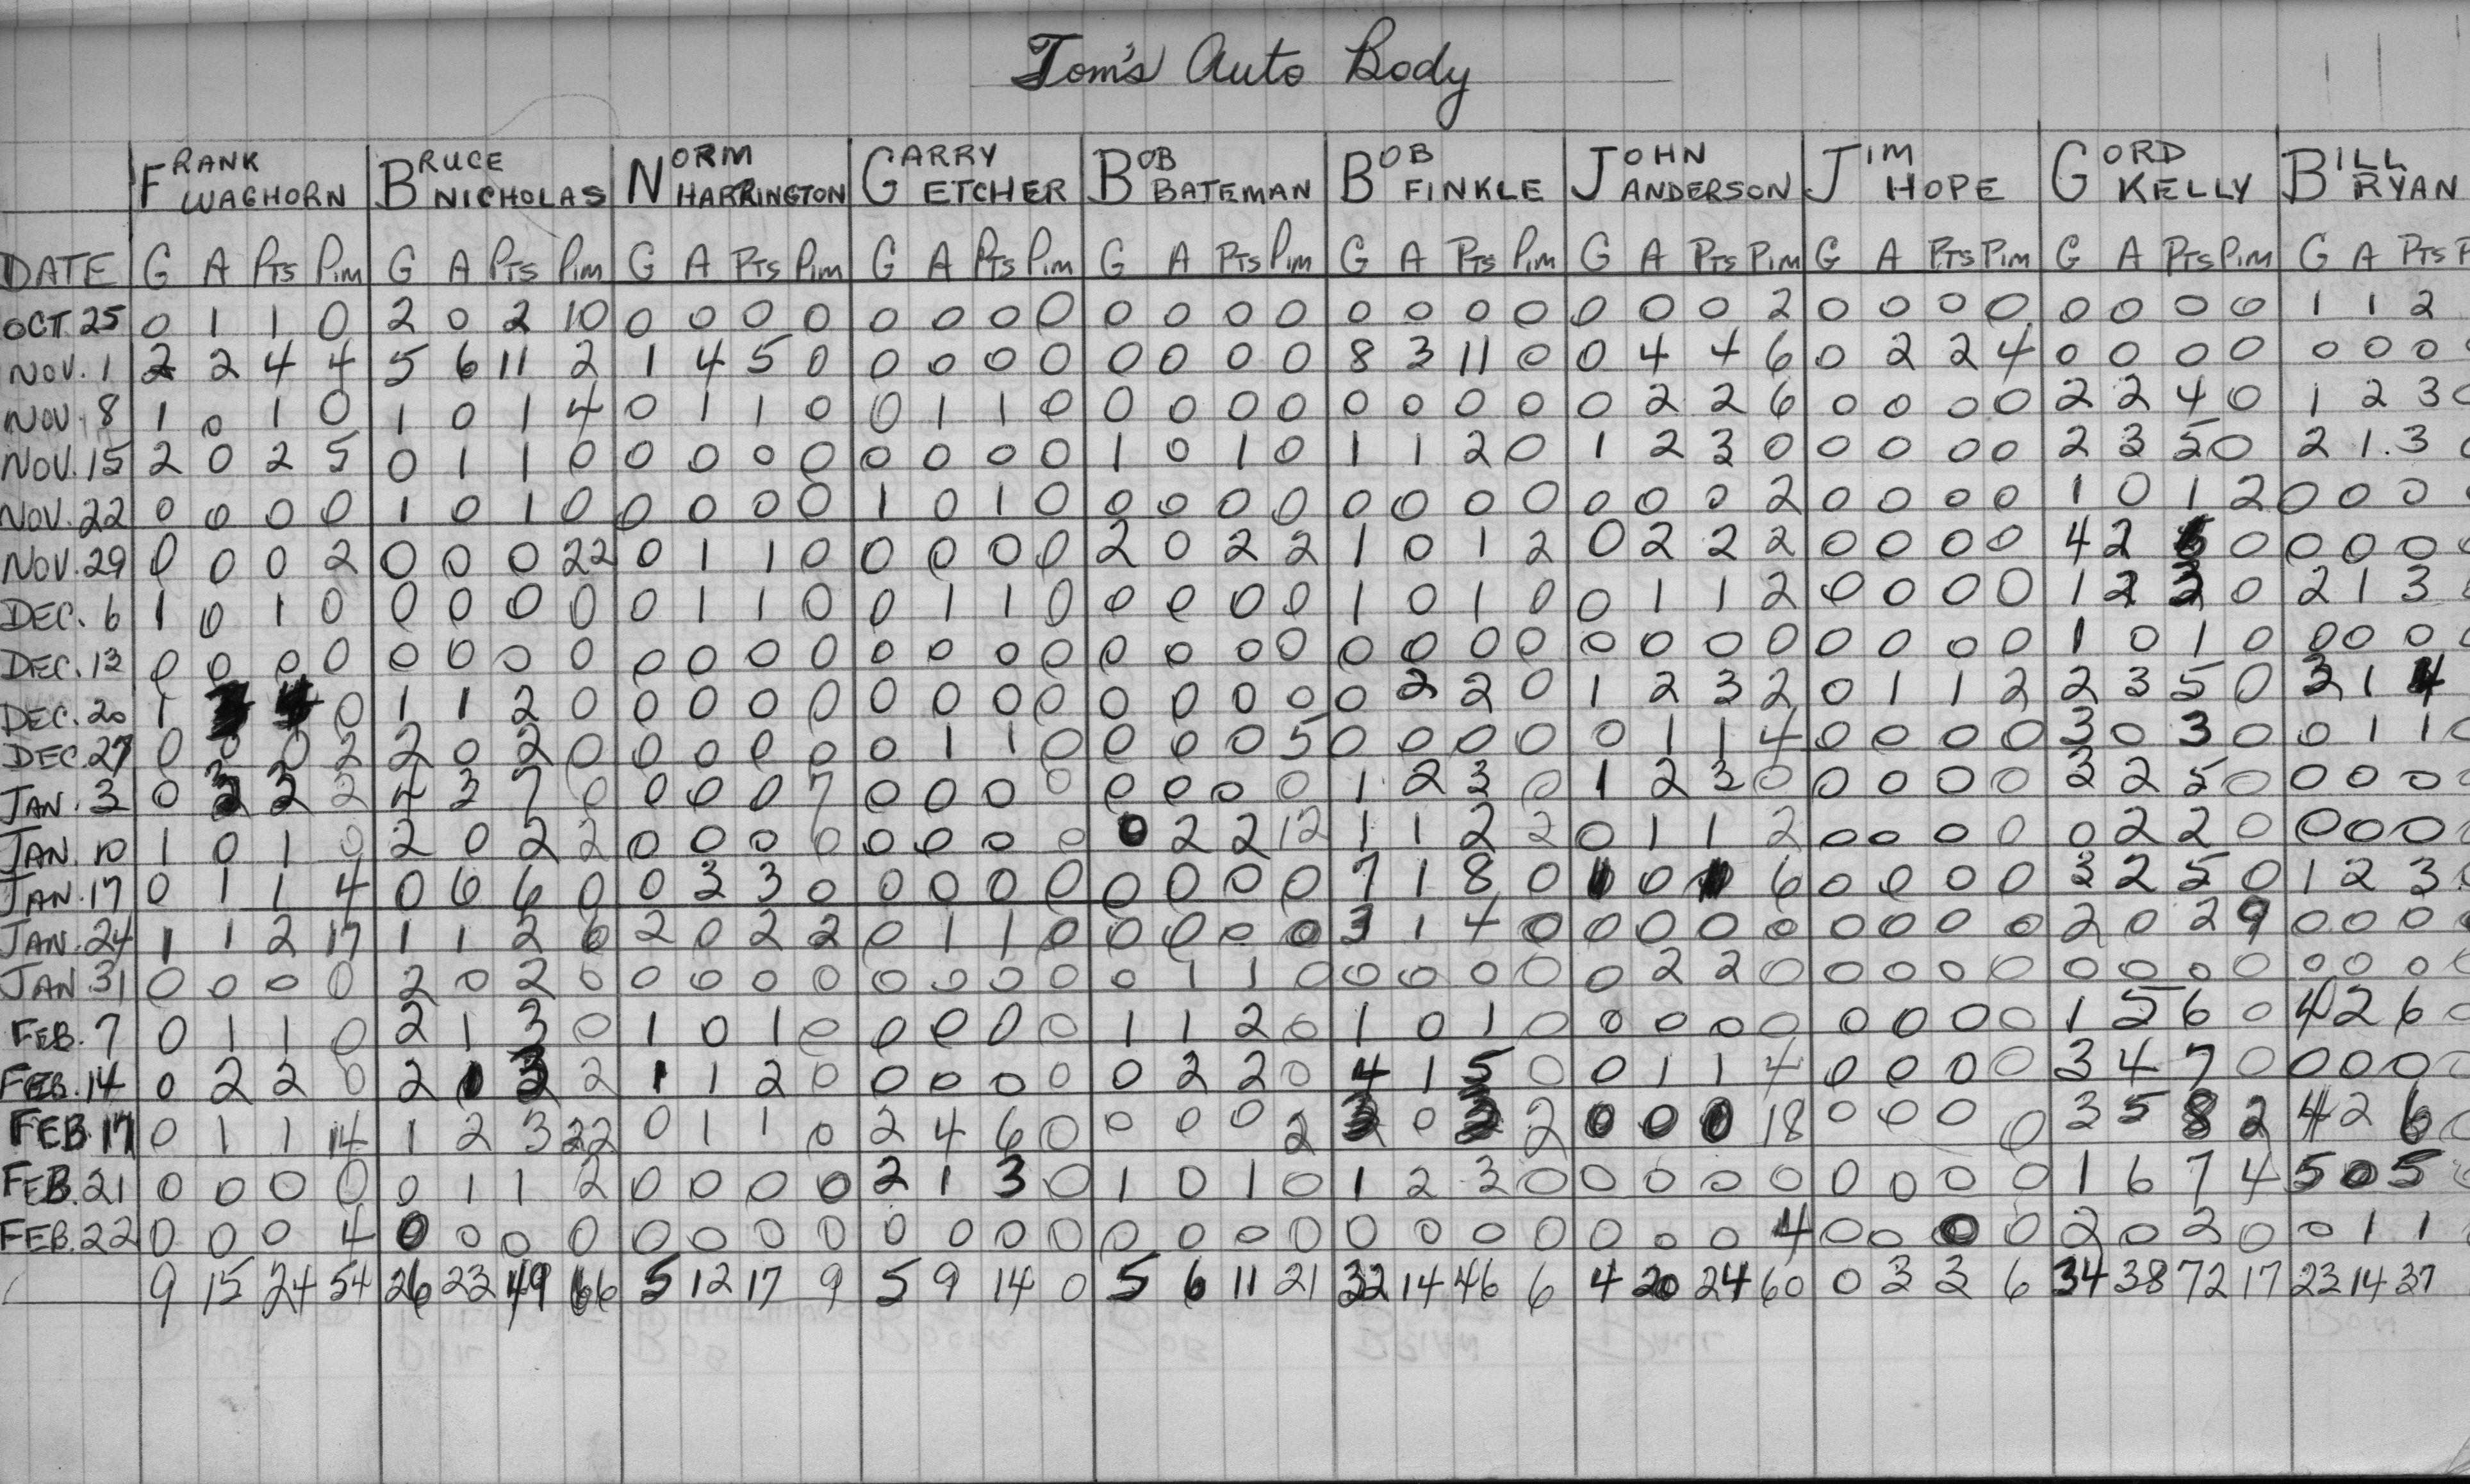 Tom's Auto Body
FRANK WAGHORN BRUCE NICHOLAS NORM HARRINGTON GARRY ETCHER BOB BATEMAN BOB FINKLE JOHN ANDERSON JIM HOPE GORD KELLY BILL RYAN
DATE G A PTS PIM G A PTS PIM G A PTS PIM G A PTS PIM G A PTS PIM G A PTS PIM G A PTS PIM G A PTS PIM G A PTS PIM G A PTS P
OCT. 25 0 1 1 0 2 0 2 10 0 0 0 0 0 0 0 0 0 0 0 0 0 0 0 0 0 0 0 2 0 0 0 0 0 0 0 0 1 1 2
NOV. 1 2 2 4 4 5 6 11 2 1 4 5 0 0 0 0 0 0 0 0 0 8 3 11 0 0 4 4 6 0 2 2 4 0 0 0 0 0 0 0
NOV. 8 1 0 1 0 1 0 1 4 0 1 1 0 0 1 1 0 0 0 0 0 0 0 0 0 0 2 2 6 0 0 0 0 2 2 4 0 1 2 3 0
NOV. 15 2 0 2 5 0 1 1 0 0 0 0 0 0 0 0 0 1 0 1 0 1 1 2 0 1 2 3 0 0 0 0 0 2 3 5 0 2 1 3 0
NOV. 22 0 0 0 0 1 0 1 0 0 0 0 0 1 0 1 0 0 0 0 0 0 0 0 0 0 0 0 2 0 0 0 0 1 0 1 2 0 0 0
NOV. 29 0 0 0 2 0 0 0 22 0 1 1 0 0 0 0 0 2 0 2 2 1 0 1 2 0 2 2 2 0 0 0 0 4 2 6 0 0 0 0 0
DEC. 6 1 0 1 0 0 0 0 0 0 1 1 0 0 1 1 0 0 0 0 0 1 0 1 0 0 1 1 2 0 0 0 0 1 2 3 0 2 1 3 0
DEC. 13 0 0 0 0 0 0 0 0 0 0 0 0 0 0 0 0 0 0 0 0 0 0 0 0 0 0 0 0 0 0 0 0 1 0 1 0 0 0 0 0
DEC. 20 1 3 4 0 1 1 2 0 0 0 0 0 0 0 0 0 0 0 0 0 0 2 2 0 1 2 3 2 0 1 1 2 2 3 5 0 3 1 4
DEC. 27 0 0 0 2 2 0 2 0 0 0 0 0 0 1 1 0 0 0 0 5 0 0 0 0 0 1 1 4 0 0 0 0 3 0 3 0 0 1 1 0
JAN. 3 0 3 3 2 4 3 7 0 0 0 0 7 0 0 0 0 0 0 0 0 1 2 3 0 1 2 3 0 0 0 0 0 3 2 5 0 0 0 0
JAN. 10 1 0 1 0 2 0 2 2 0 0 0 0 0 0 0 0 0 2 2 12 1 1 2 2 0 1 1 2 0 0 0 0 0 2 2 0 0 0 0 0
JAN. 17 0 1 1 4 0 6 6 0 0 3 3 0 0 0 0 0 0 0 0 0 7 1 8 0 1 0 1 6 0 0 0 0 3 2 5 0 1 2 3 0
JAN. 24 1 1 2 17 1 1 2 6 2 0 2 2 0 1 1 0 0 0 0 0 3 1 4 0 0 0 0 0 0 0 0 0 2 0 2 9 0 0 0 0
JAN. 31 0 0 0 0 2 0 2 0 0 0 0 0 0 0 0 0 0 1 1 0 0 0 0 0 0 2 2 0 0 0 0 0 0 0 0 0 0 0 0 0
FEB. 7 0 1 1 0 2 1 3 0 1 0 1 0 0 0 0 0 1 1 2 0 1 0 1 0 0 0 0 0 0 0 0 0 1 5 6 0 4 2 6 0
FEB. 14 0 2 2 0 2 1 3 2 1 1 2 0 0 0 0 0 0 2 2 0 4 1 5 0 0 1 1 4 0 0 0 0 3 4 7 0 0 0 0 0
FEB. 17 0 1 1 14 1 2 3 22 0 1 1 0 2 4 6 0 0 0 0 2 3 0 3 2 0 0 0 18 0 0 0 0 3 5 8 2 4 2 6 0
FEB. 21 0 0 0 0 0 1 1 2 0 0 0 0 2 1 3 0 1 0 1 0 1 2 3 0 0 0 0 0 0 0 0 0 1 6 7 4 5 0 5 0
FEB. 22 0 0 0 4 0 0 0 0 0 0 0 0 0 0 0 0 0 0 0 0 0 0 0 0 0 0 0 4 0 0 0 0 2 0 2 0 0 1 1
9 15 24 54 26 23 49 66 5 12 17 9 5 9 14 0 5 6 11 21 32 14 46 6 4 20 24 60 0 3 3 6 34 38 72 17 23 14 37